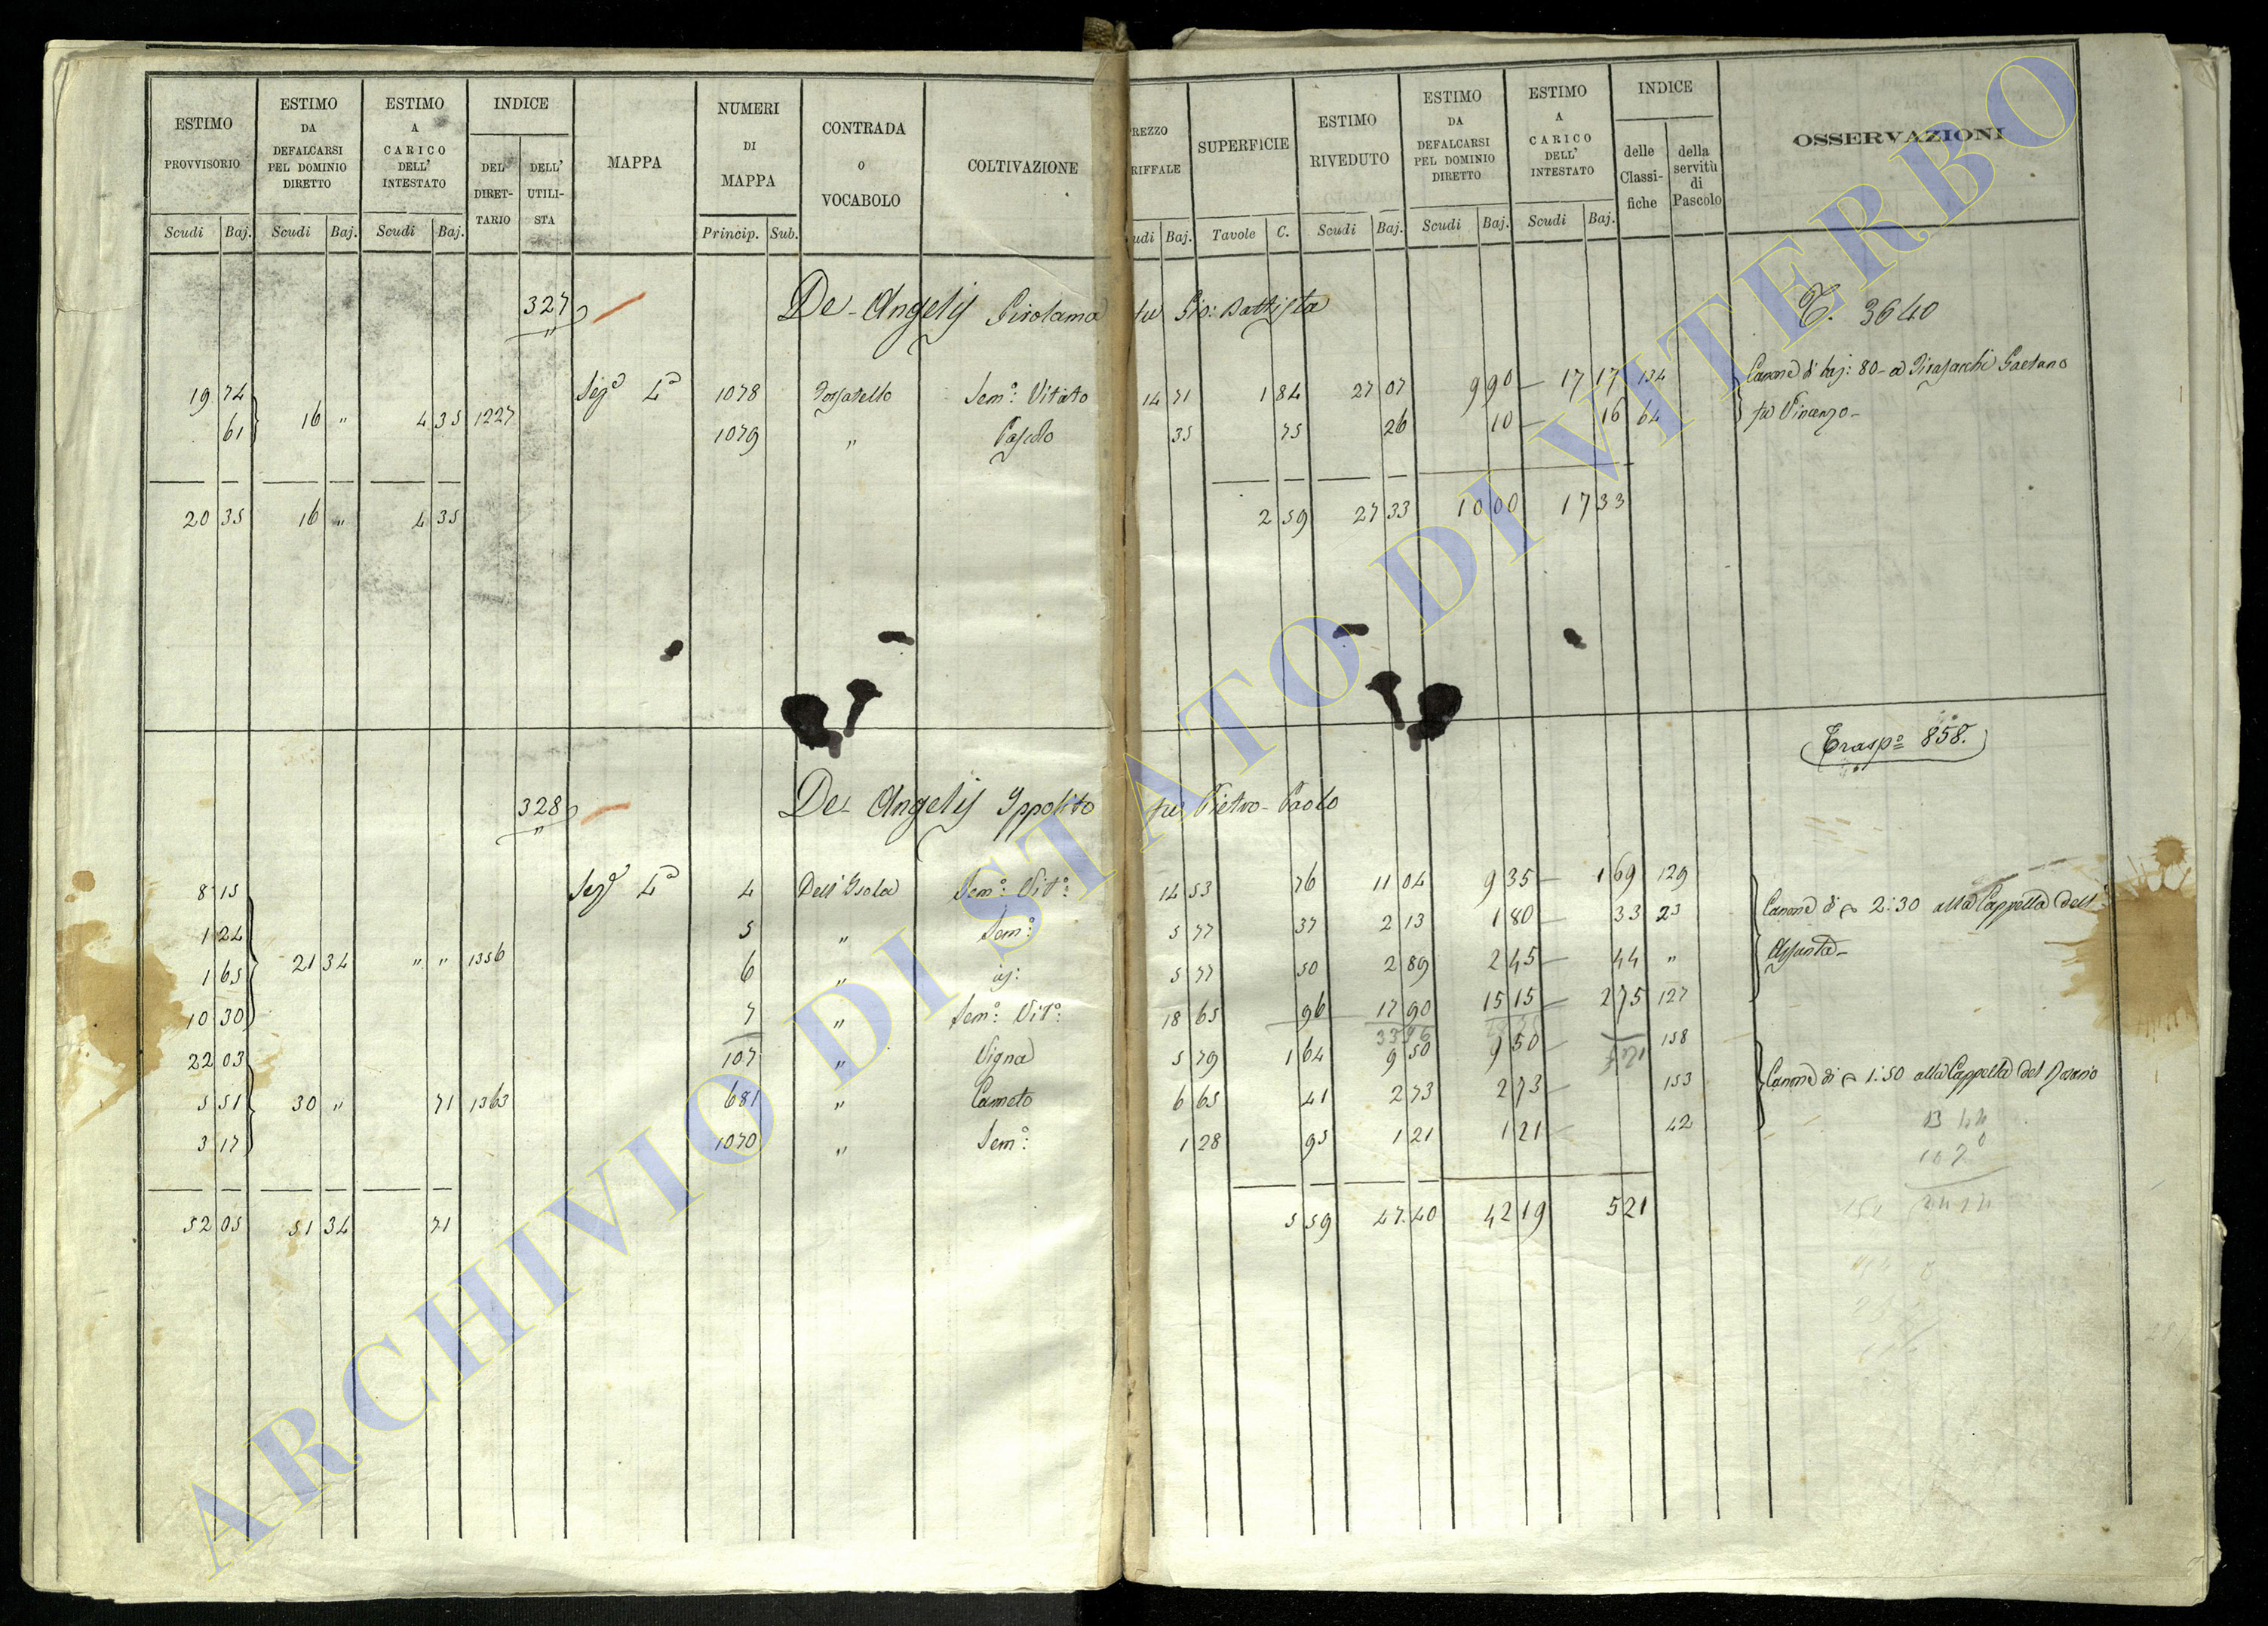 ESTIMO PROVVISORIO | ESTIMO DA DEFALCARSI PEL DOMINIO DIRETTO | ESTIMO A CARICO DELL' INTESTATO | INDICE | MAPPA | NUMERI DI MAPPA | CONTRADA O VOCABOLO | COLTIVAZIONE | REZZO RIFFALE | SUPERFICIE | ESTIMO RIVEDUTO | ESTIMO DA DEFALCARSI PEL DOMINIO DIRETTO | ESTIMO A CARICO DELL' INTESTATO | INDICE | OSSERVAZIONI
DEL DIRETTARIO | DELL' UTILISTA | delle Classifiche | della servitù di Pascolo
Scudi | Baj. | Scudi | Baj. | Scudi | Baj. | Princip. | Sub. | udi | Baj. | Tavole | C. | Scudi | Baj. | Scudi | Baj. | Scudi | Baj.
327 De-Angelis Girolama fu Gio: Battista T. 3640
19 74 Sez.e 4a 1078 Fossatello Sem.o Vitato 14 71 1 84 27 07 9 90 — 17 17 134 Canone di baj: 80 - a Gaetano
61 16 " 4 35 1227 1079 " Pascolo 35 75 26 10 — 16 64 fu Vincenzo -
20 35 16 " 4 35 2 59 27 33 10 00 17 33
Trasp.o 858.
328 De-Angelis Ippolito fu Pietro-Paolo
8 15 Sez.e 4a 4 Dell'Isola Sem.o Vit.o 14 53 76 11 04 9 35 — 1 69 129 Canone di 2:30 alla Cappella dell'
1 24 5 " Sem.o 5 77 37 2 13 1 80 — 33 23
21 34 " " 1356 Assunta -
1 65 6 " id: 5 77 50 2 89 2 45 — 44 "
10 30 7 " Sem.o Vit.o 18 65 96 17 90 15 15 — 2 75 127
33 96
22 03 107 " Vigna 5 79 1 64 9 50 9 50 — 5 21 158
5 51 30 " 71 1363 681 " Canneto 6 65 41 2 73 2 73 — 153 Canone di 1:50 alla Cappella del Rosario
3 17 1070 " Sem.o 1 28 95 1 21 1 21 — 42
52 05 51 34 71 5 59 47.40 42 19 5 21
ARCHIVIO DI STATO DI VITERBO